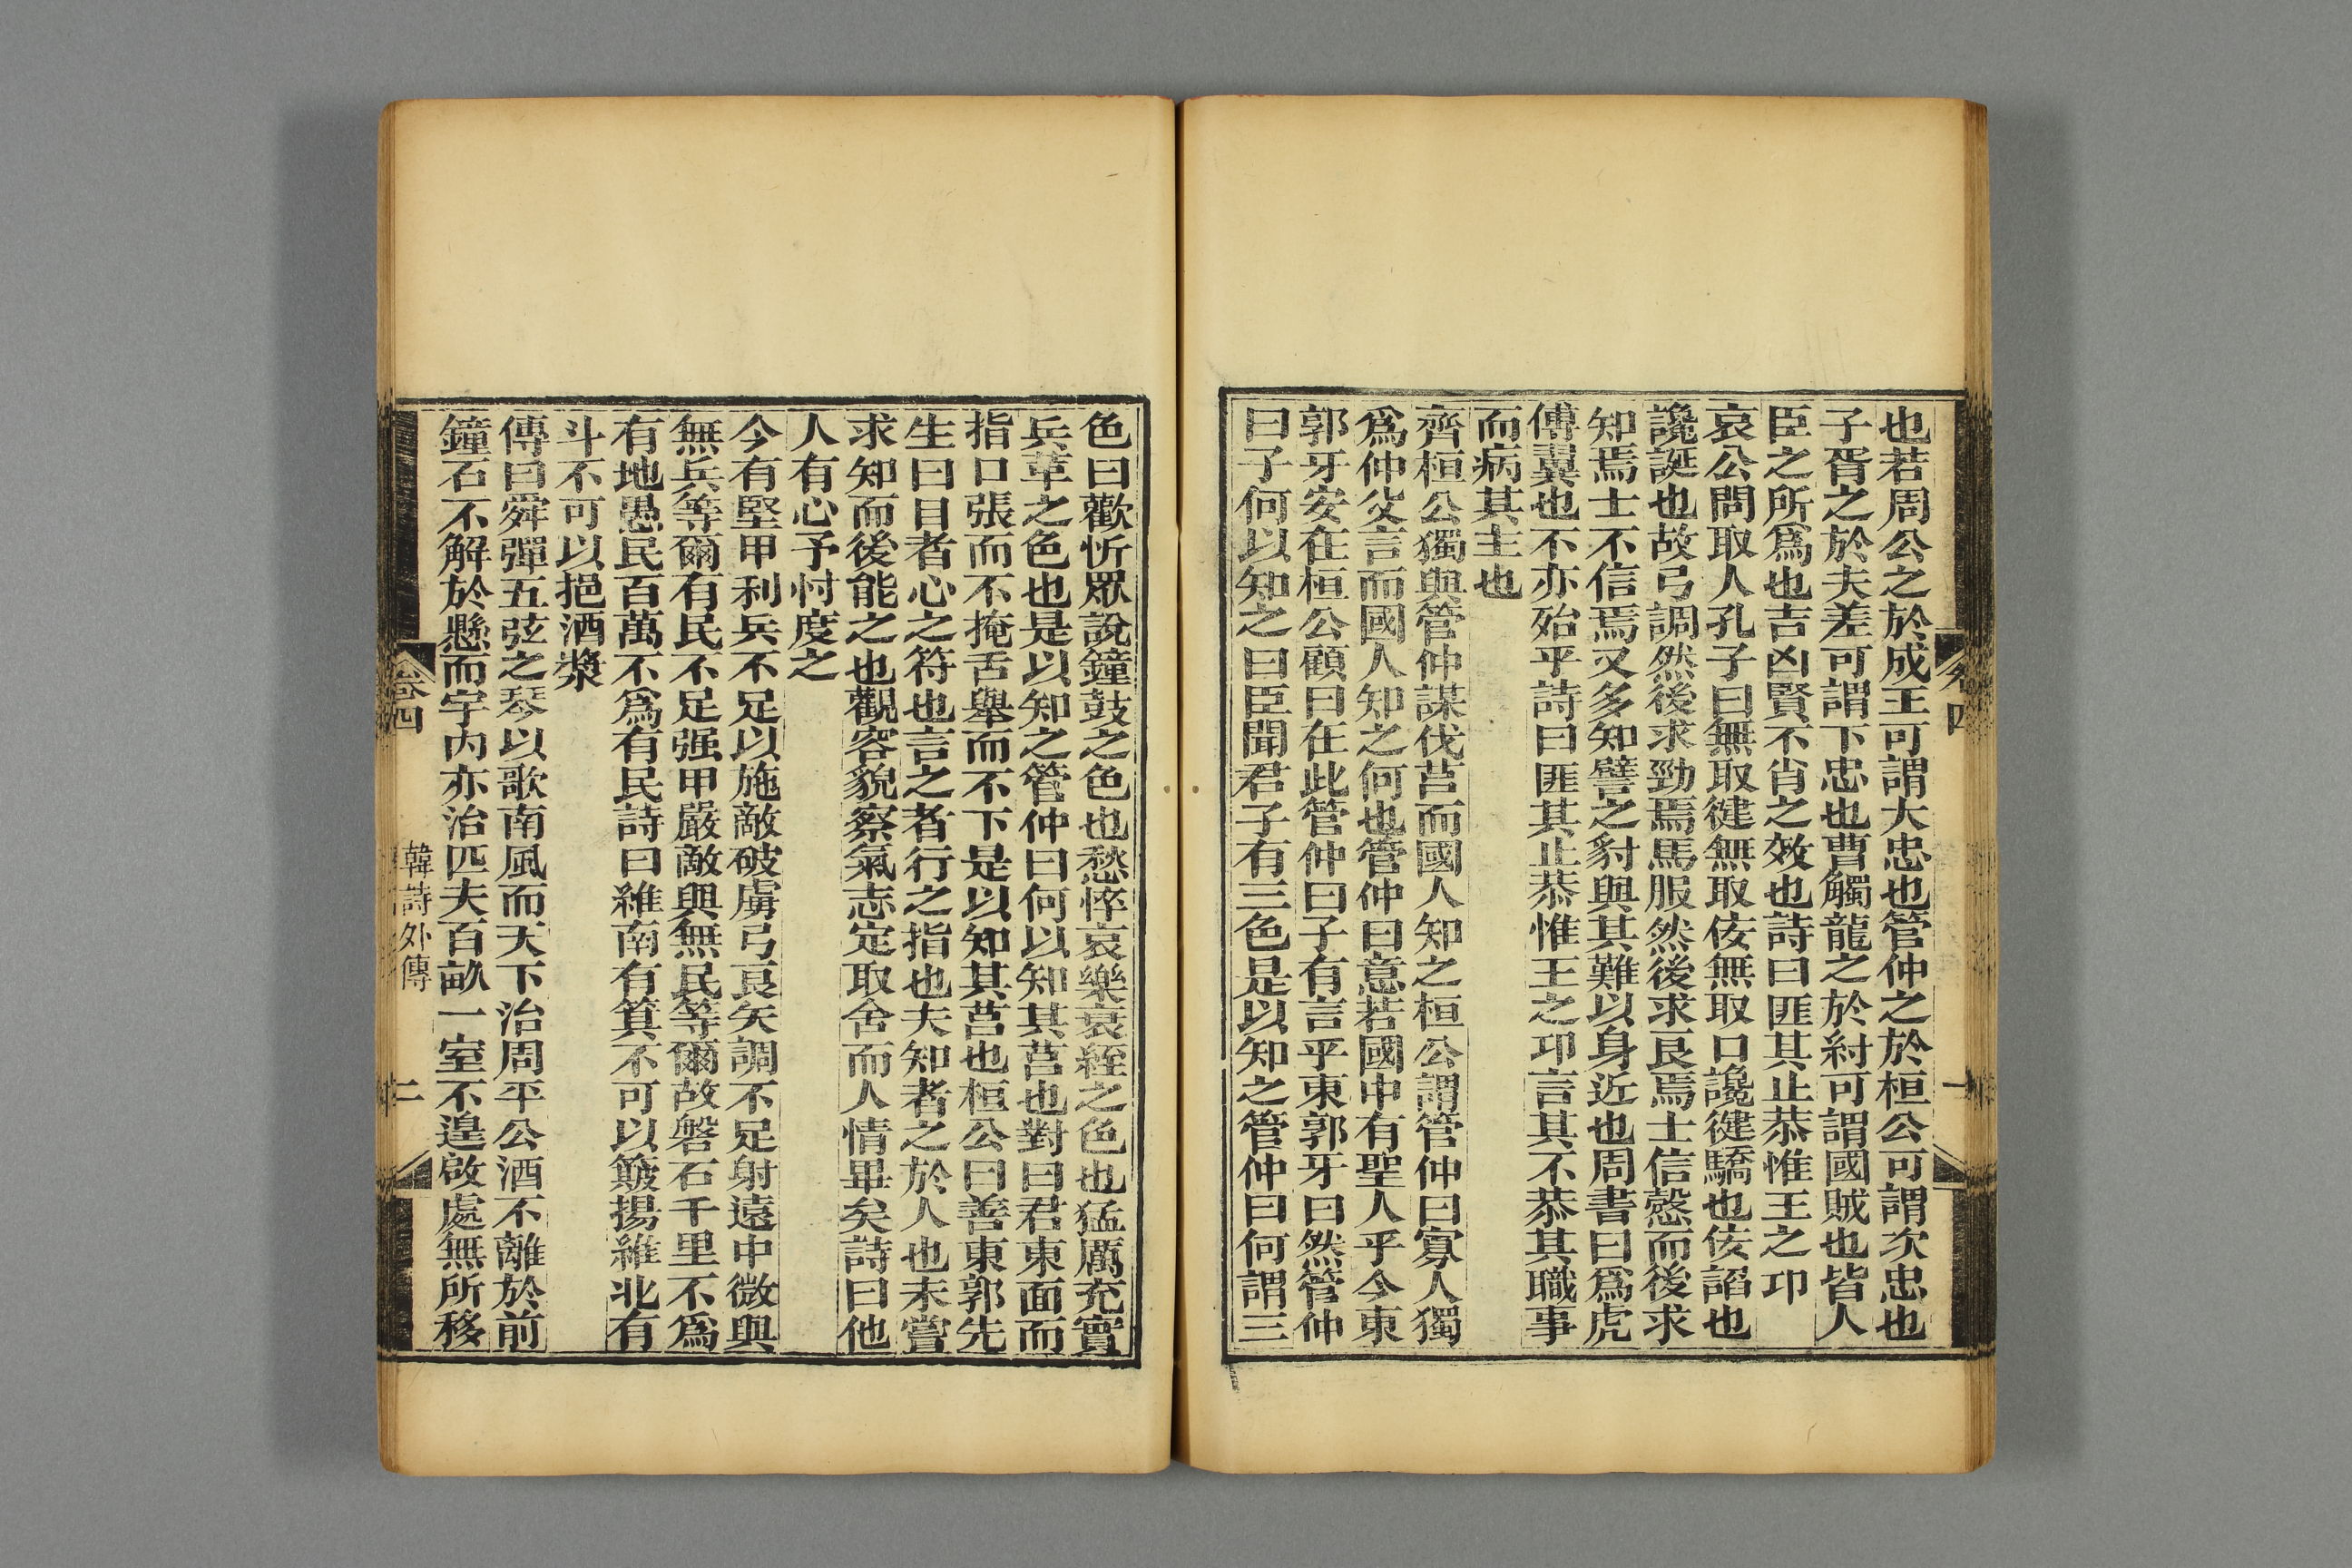 也若周公之於成王可謂大忠也管仲之於桓公可謂次忠也
子胥之於夫差可謂下忠也曹觸龍之於紂可謂國賊也皆人
臣之所爲也吉凶賢不肖之效也詩曰匪其止恭惟王之卭
哀公問取人孔子曰無取健無取佞無取口讒健驕也佞諂也
讒誕也故弓調然後求勁焉馬服然後求良焉士信愨而後求
知焉士不信焉又多知譬之豺與其難以身近也周書曰爲虎
傅翼也不亦殆乎詩曰匪其止恭惟王之卭言其不恭其職事
而病其主也
齊桓公獨與管仲謀伐莒而國人知之桓公謂管仲曰寡人獨
爲仲父言而國人知之何也管仲曰意若國中有聖人乎今東
郭牙安在桓公顧曰在此管仲曰子有言乎東郭牙曰然管仲
曰子何以知之曰臣聞君子有三色是以知之管仲曰何謂三
色曰歡忻眾說鐘鼓之色也愁悴哀樂衰絰之色也猛厲充實
兵革之色也是以知之管仲曰何以知其莒也對曰君東面而
指口張而不掩舌舉而不下是以知其莒也桓公曰善東郭先
生曰目者心之符也言之者行之指也夫知者之於人也未嘗
求知而後能之也觀容貌察氣志定取舍而人情畢矣詩曰他
人有心予忖度之
今有堅甲利兵不足以施敵破虜弓良矢調不足射遠中微與
無兵等爾有民不足强甲嚴敵與無民等爾故磐石千里不爲
有地愚民百萬不爲有民詩曰維南有箕不可以簸揚維北有
斗不可以挹酒漿
傳曰舜彈五弦之琴以歌南風而天下治周平公酒不離於前
鐘石不解於懸而宇内亦治匹夫百畝一室不遑啟處無所移
卷四
韓詩外傳
二